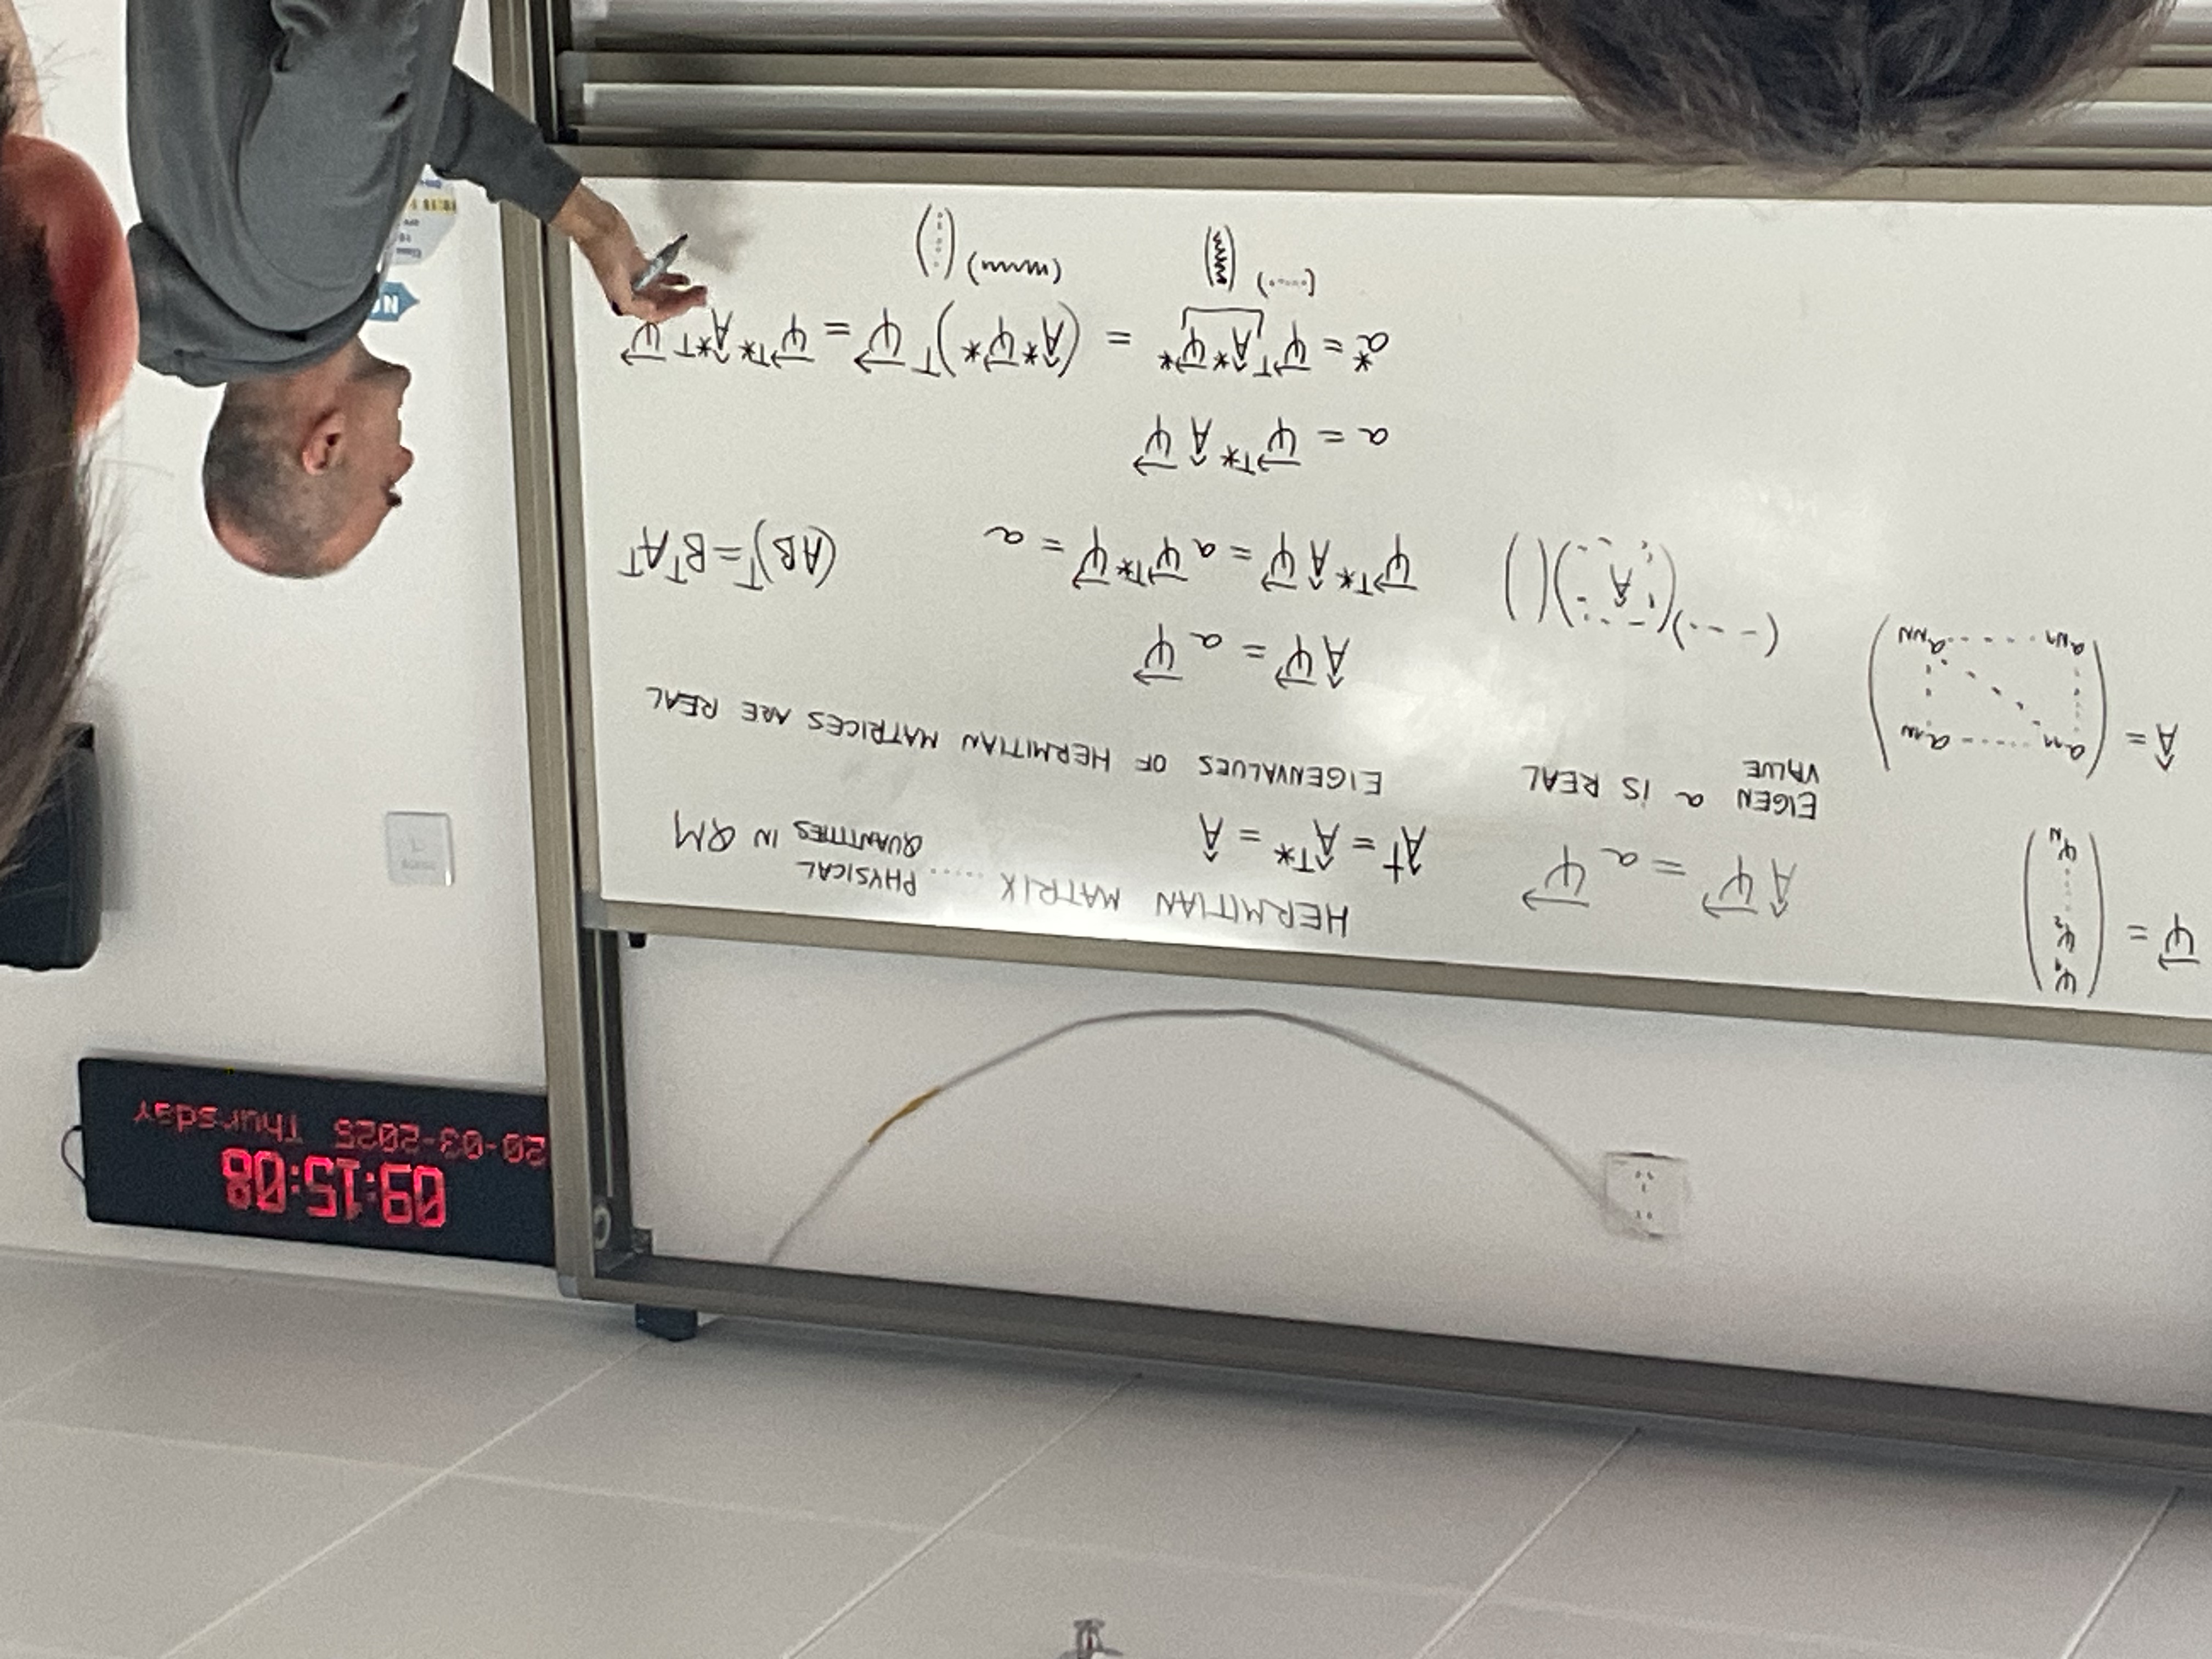 09:15:08
20-03-2025 Thursday
ψ⃗ = (ψ₁ ψ₂ ⋮ ψ_N)
Â = (a₁₁ ..... a₁N
a_N1 ..... a_NN)
Âψ⃗ = aψ⃗
EIGEN VALUE a IS REAL
(- - -.)(Â)( )
HERMITIAN MATRIX ..... PHYSICAL
QUANTITIES IN QM
Â† = Â^T* = Â
EIGENVALUES OF HERMITIAN MATRICES ARE REAL
Âψ⃗ = aψ⃗
ψ⃗^T* Âψ⃗ = aψ⃗^T* ψ⃗ = a
(AB)^T = B^T A^T
a = ψ⃗^T* Âψ⃗
a* = ψ⃗^T Â*ψ⃗* = (Â*ψ⃗*)^T ψ⃗ = ψ⃗^T* Â*^T ψ⃗